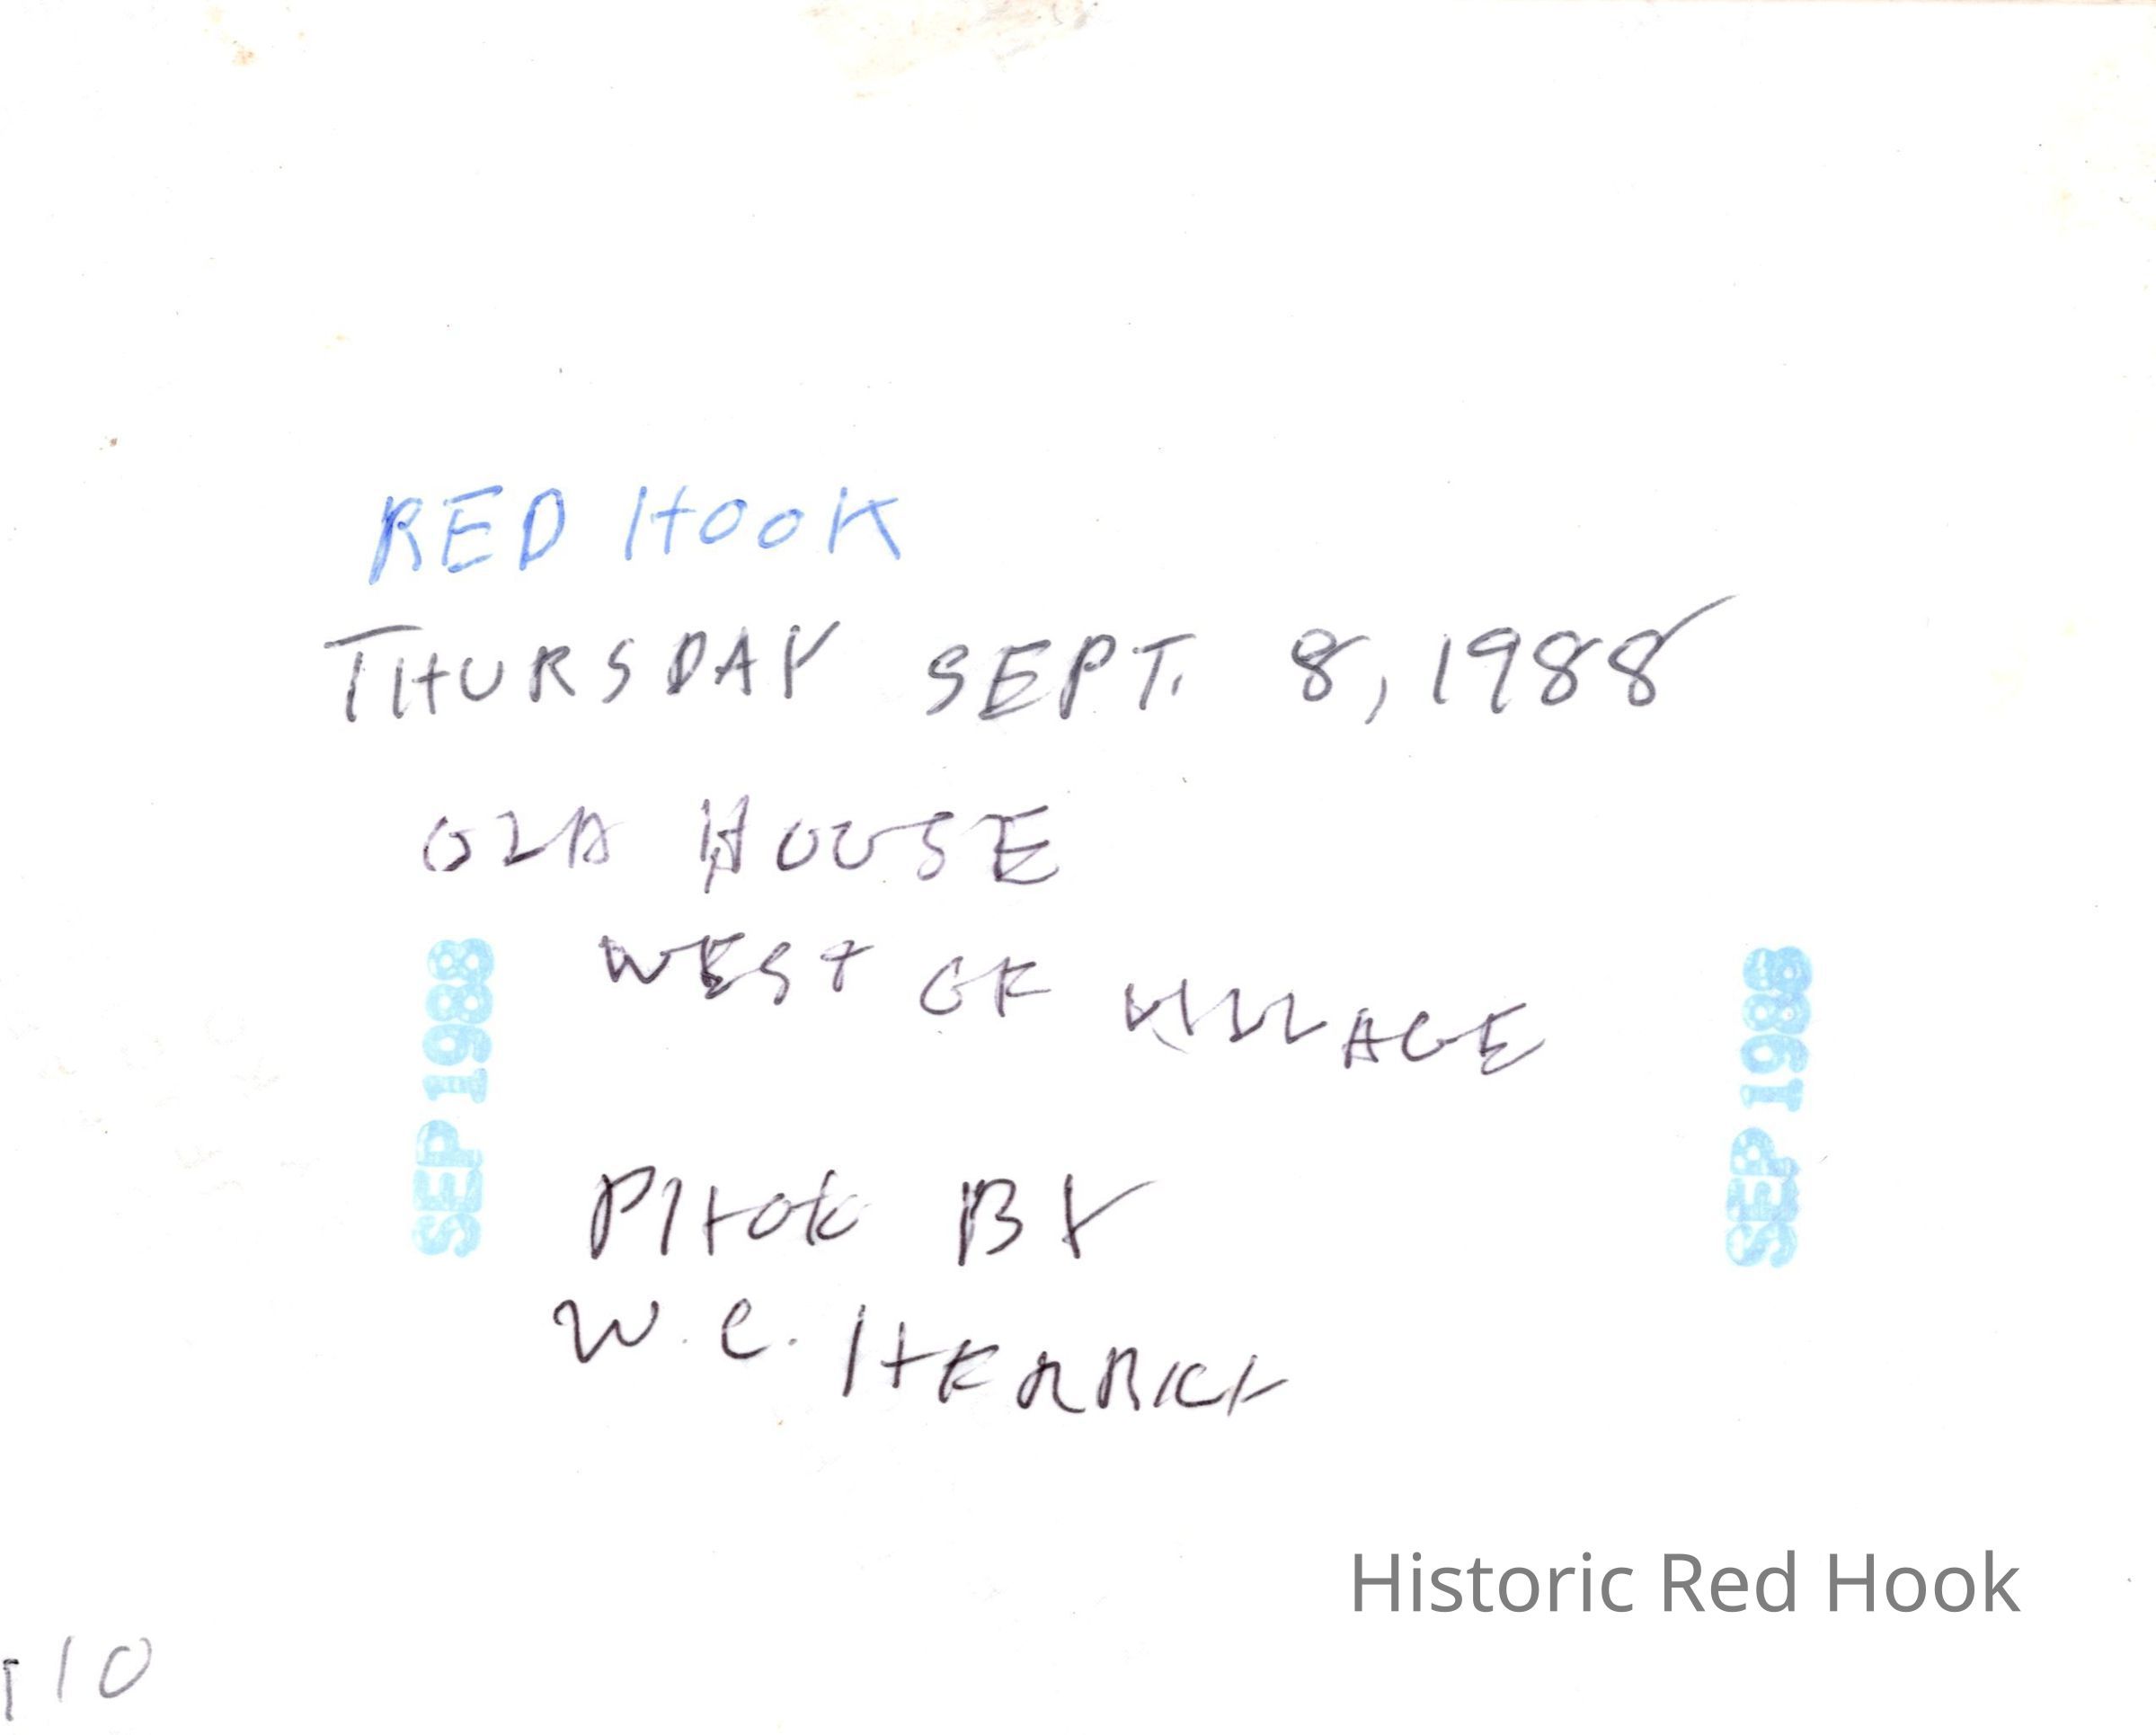 RED HOOK
THURSDAY SEPT. 8, 1988
OLD HOUSE
WEST OF VILLAGE
SEP 1988
SEP 1988
PHOTO BY
W. C. HERRICK
Historic Red Hook
10